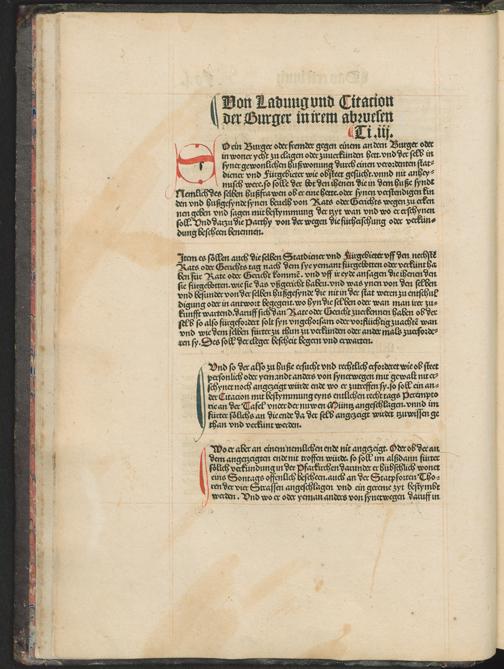 Von Ladung vnd Citation
der Burger in irem abwesen
Ti .iij.
SO ein Burger oder fremder gegen einem andern Burger oder
in woner ycht zu clagen oder zuuerkünden hett. vnd der selb in
syner gewonlichen hußwonung durch einen verordenten stat-
diener vnd Fürgebieter wie obstet gesücht. vnnd nit anhey-
misch were. so solle der bott den ihenen die in dem huße synd
Nemlich des selben hußfrawen ob er eine hette. oder synen verstendigen kin
den vnd hußgesynde synen beuelh von Rats oder Gerichts wegen zu erken
nen geben vnd sagen mit bestymmung der zyt wan vnd wo er erschynen
soll. Vnd darzu die Parthy von der wegen die fürheischung oder verkün-
dung bescheen benennen.
Item es söllen auch die selben Statdiener vnd Fürgebieter vff den nechstē
Rats oder Gerichts tag nach dem sye yemant fürgebotten oder verkünt ha
ben für Rate oder Gericht kommē. vnd vff ir eyde ansagen die ihenen den
sie fürgebotten. wie sie das vßgericht haben. vnd was ynen von den selben
vnd besunder von der selben hußgesynde die nit in der stat weren zu entschul
digung oder in antwort begegent. wo hyn die selben oder wan man irer zu-
kunfft wartend. daruff sich dan Rate oder Gericht zuerkennen haben ob der
selb so also fürgefordert solt syn vngehorsam oder vorflüchtig zuachtē wan
vnd wie dem selben fürter zu thun zu verkünden oder ander mals zuerforde-
ren sy. Des soll der cleger bescheit begern vnd erwarten.
Vnd so der also zu huße ersücht vnd rechtlich erfordert wie ob steet
persönlich oder yemandt anders von synetwegen mit gewalt nit er-
schynet noch angezeigt würde ende wo er zutreffen sy. so soll ein an-
der Citacion mit bestymmung eyns entlichen recht tags Perempto-
rie an der Tafel vnder der nuwen Müntz angeschlagen. vnnd im
fürter sölichs an die ende da der selb angezeigt würdt zuwissen ge
than vnd verkünt werden.
Wo er aber an einem nemlichen ende nit angezeigt. Oder ob der an
dem angezeigten ende nit troffen würde. so soll im alßdann fürter
sölich verkündung in der Pfarkirchen darunder er hüßlich wonet
eins Sontags offenlich bescheen. auch an der Statpforten Tho-
ren der vier Strassen angeschlagen vnd ein gereme zyt bestymbt
werden. Vnd wo er oder yeman anders von synetwegen daruff in